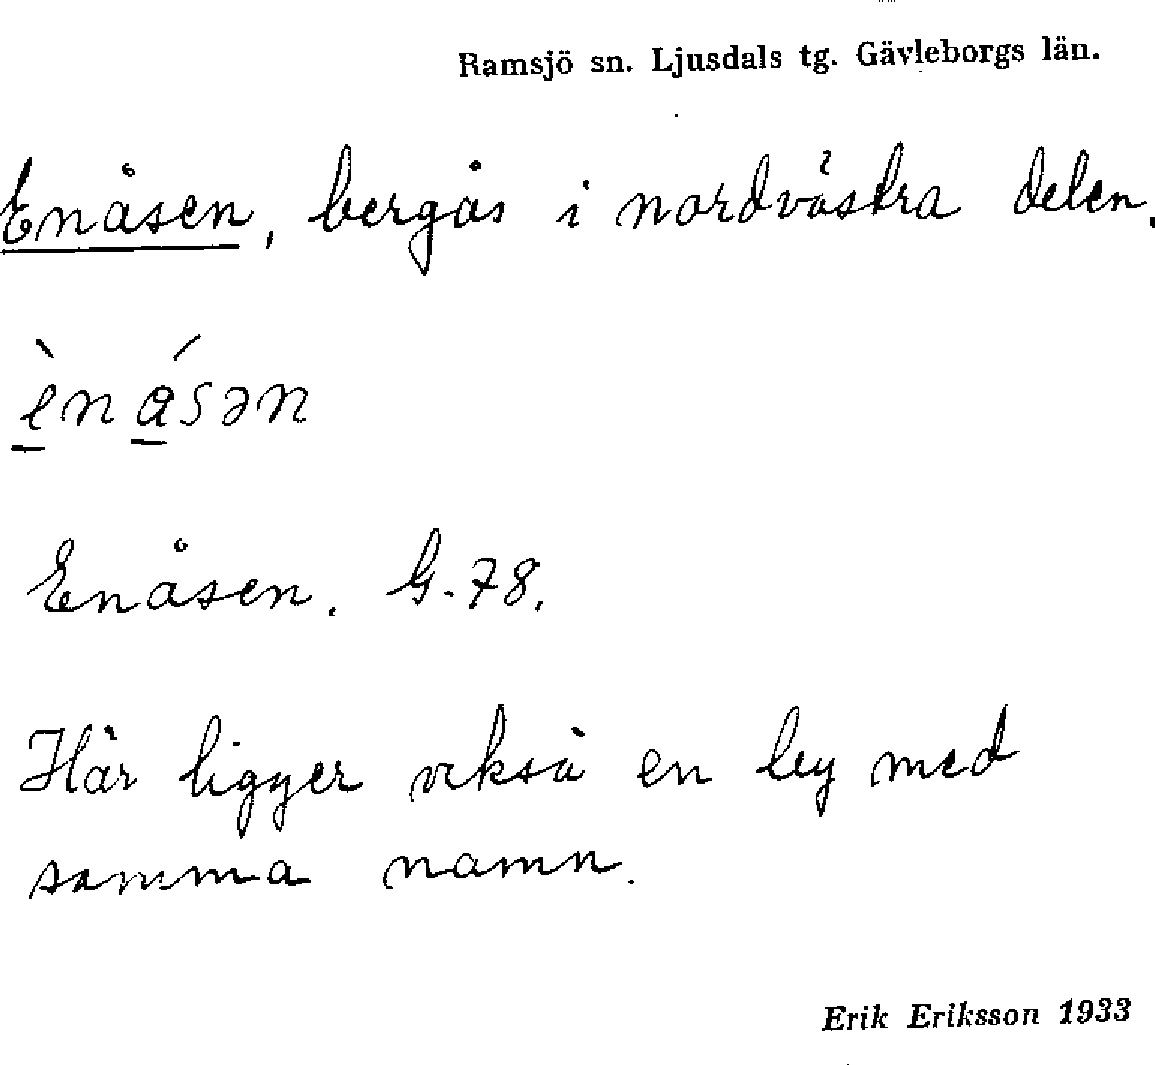 Ramsjö sn. Ljusdals tg. Gävleborgs län.
Enåsen, bergås i nordvästra delen.
ènásən
Enåsen. G.78.
Här ligger också en by med
samma namn.
Erik Eriksson 1933